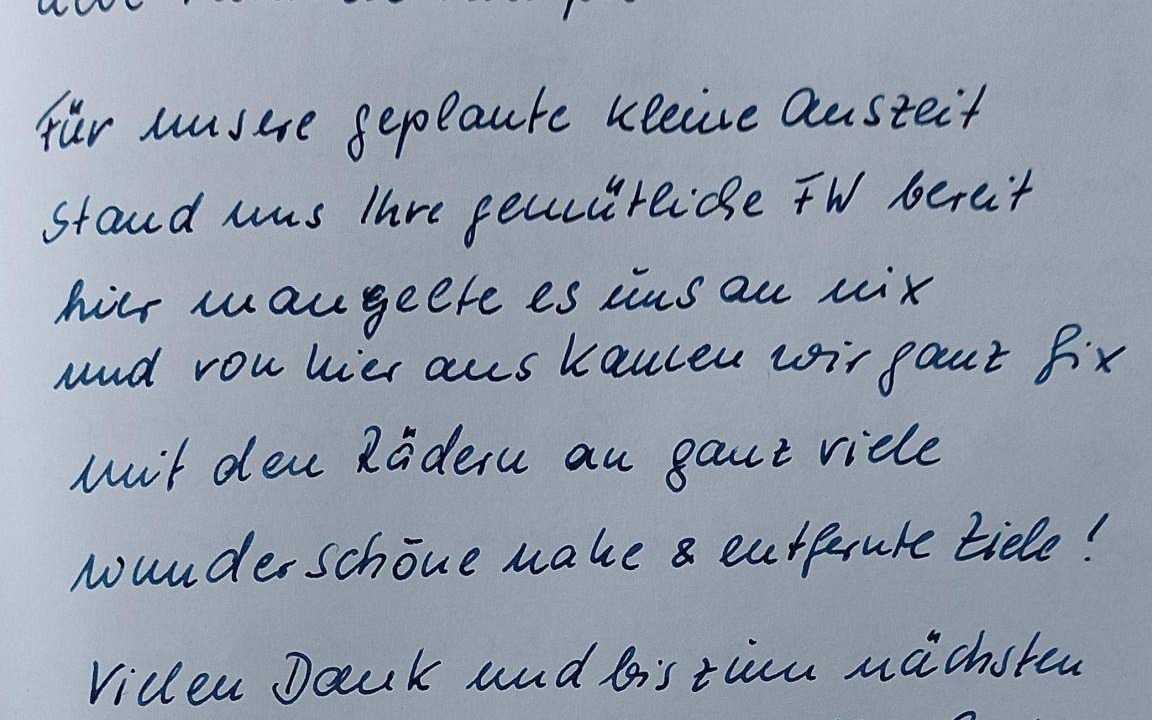 Für unsere geplante kleine Auszeit
stand uns Ihre gemütliche FW bereit
hier mangelte es uns an nix
und von hier aus kamen wir ganz fix
mit den Rädern an ganz viele
wunderschöne nahe & entfernte Ziele!
Vielen Dank und bis zum nächsten